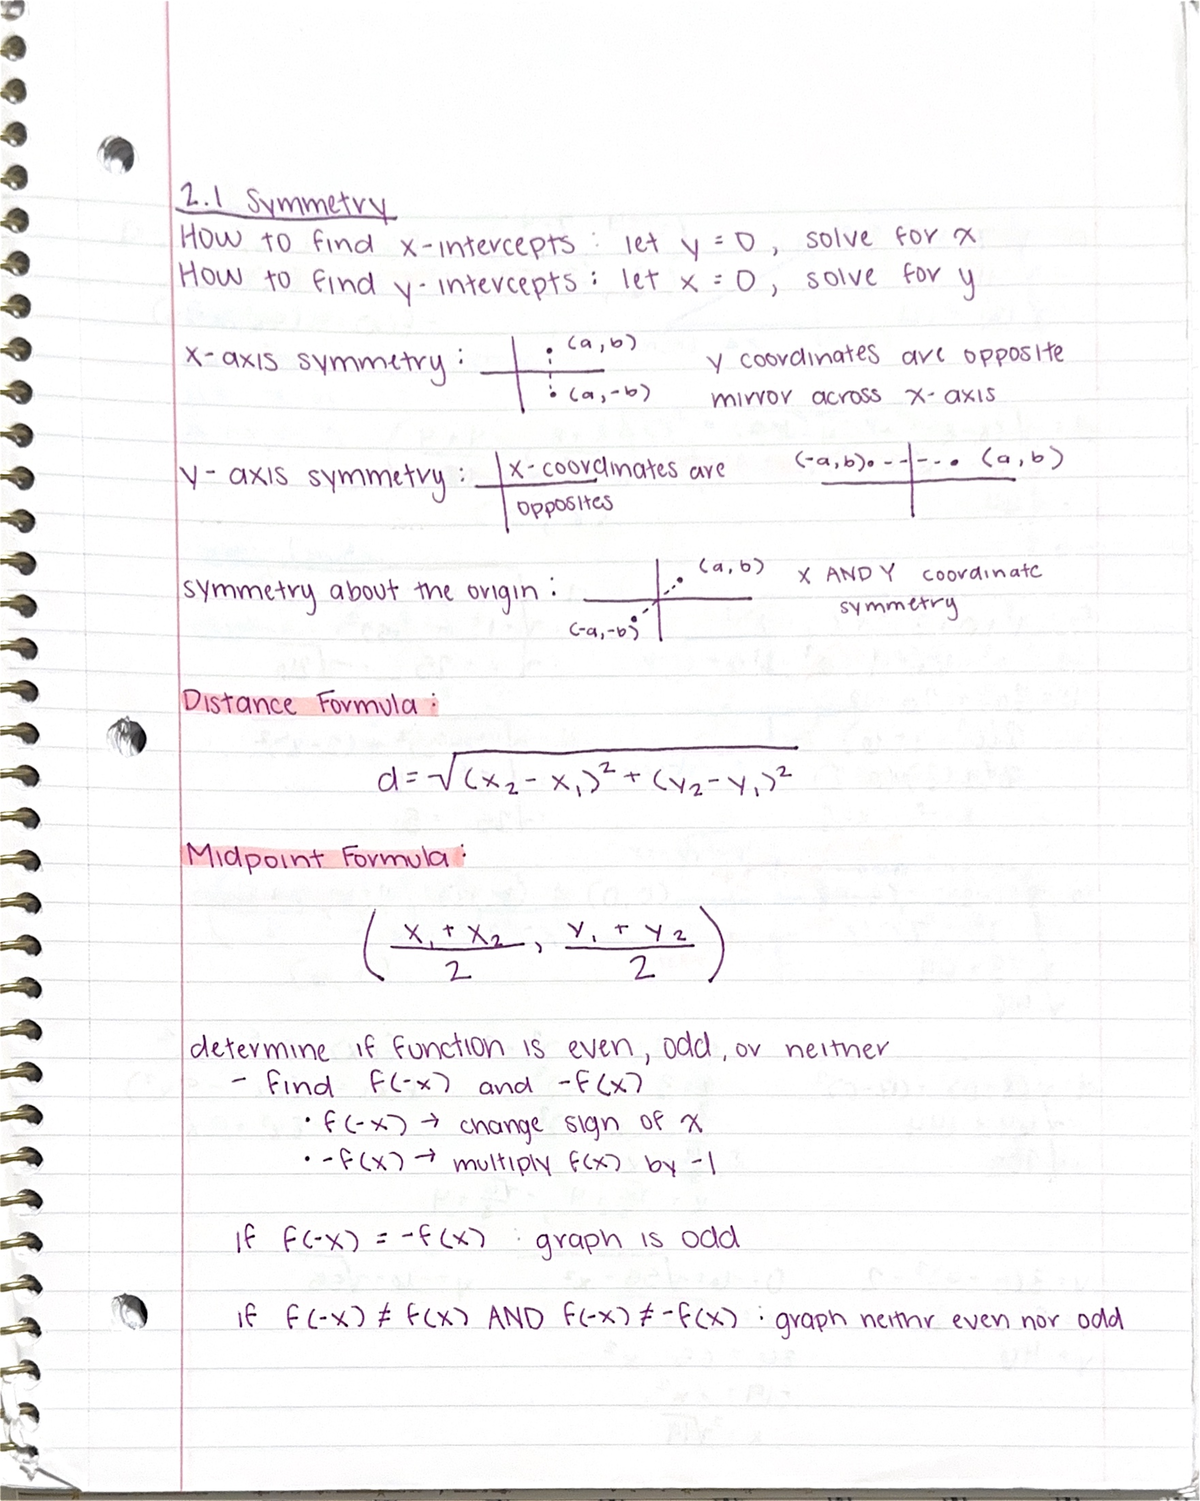 2.1 Symmetry
How to find x-intercepts: let y = 0, solve for x
How to find y-intercepts: let x = 0, solve for y
x-axis symmetry: (a,b) y coordinates are opposite
(a,-b) mirror across x-axis
y-axis symmetry: x-coordinates are (-a,b) (a,b)
opposites
symmetry about the origin: (a,b) X AND Y coordinate
(-a,-b) symmetry
Distance Formula:
d=√(x₂-x₁)²+(y₂-y₁)²
Midpoint Formula:
(x₁+x₂/2, y₁+y₂/2)
determine if function is even, odd, or neither
- find f(-x) and -f(x)
• f(-x) → change sign of x
• -f(x) → multiply f(x) by -1
if f(-x) = -f(x) : graph is odd
if f(-x) ≠ f(x) AND f(-x) ≠ -f(x) : graph neithr even nor odd